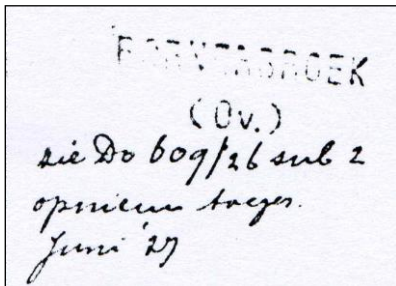 BORNERBROEK
(Ov.)
zie Do 609/26 sub 2
opnieuw
Juni '27